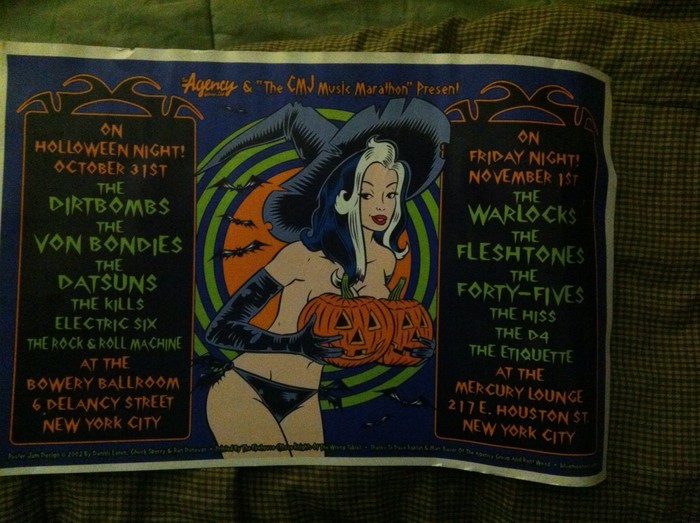 The Agency & "The CMJ Music Marathon" Present
ON
HOLLOWEEN NIGHT!
OCTOBER 31ST
THE
DIRTBOMBS
THE
VON BONDIES
THE
DATSUNS
THE KILLS
ELECTRIC SIX
THE ROCK & ROLL MACHINE
AT THE
BOWERY BALLROOM
6 DELANCY STREET
NEW YORK CITY
ON
FRIDAY NIGHT!
NOVEMBER 1ST
THE
WARLOCKS
THE
FLESHTONES
THE
FORTY-FIVES
THE HISS
THE D4
THE ETIQUETTE
AT THE
MERCURY LOUNGE
217 E. HOUSTON ST.
NEW YORK CITY